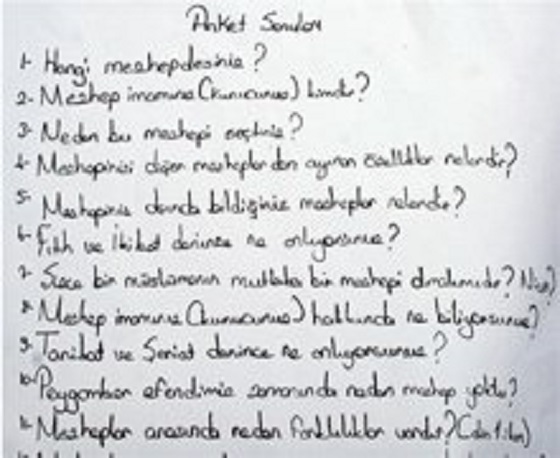 Anket Soruları
1- Hangi meshepdesiniz?
2- Meshep imamınız (kurucunuz) kimdir?
3- Neden bu meshepi seçtiniz?
4- Meshepinizi diğer mesheplerden ayıran özellikler nelerdir?
5- Meshepiniz dışında bildiğiniz meshepler nelerdir?
6- Fıkıh ve İtikat denince ne anlıyorsunuz?
7- Sizce bir müslümanın mutlaka bir meshepi olmalımıdır? Niçin?
8- Meshep imamınız (kurucunuz) hakkında ne biliyorsunuz?
9- Tarikat ve Seriat denince ne anlıyorsunuz?
10- Peygamber efendimiz zamanında neden meshep yoktu?
11- Meshepler arasında neden farklılıklar vardır?